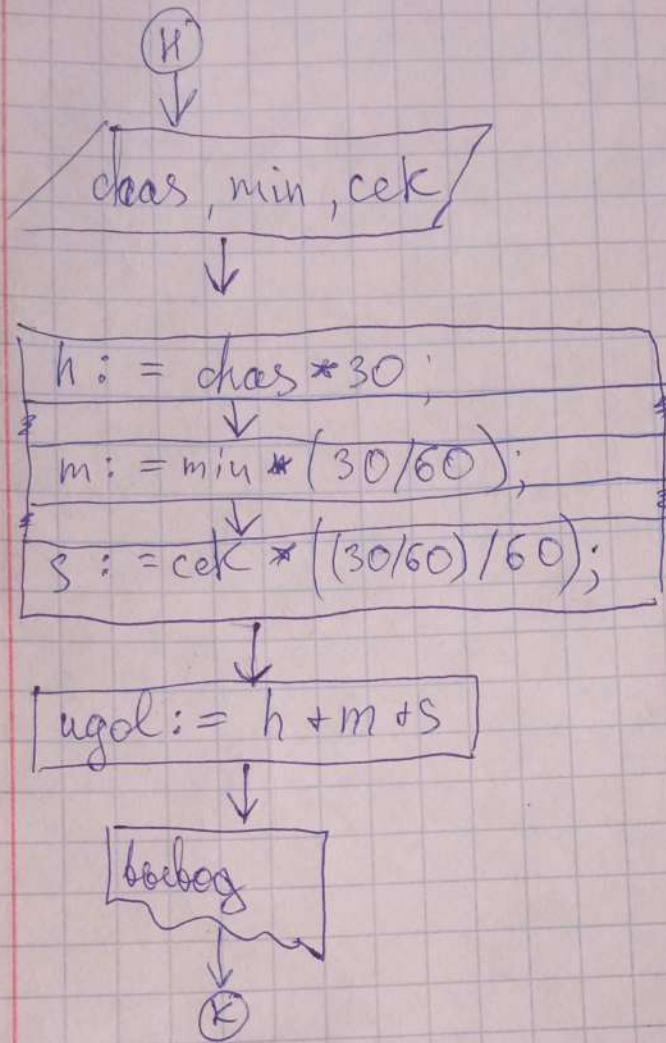 Н
chas, min, сек
h := chas * 30;
m := min * (30/60);
s := сек * ((30/60)/60);
ugol := h + m + s
вывод
К